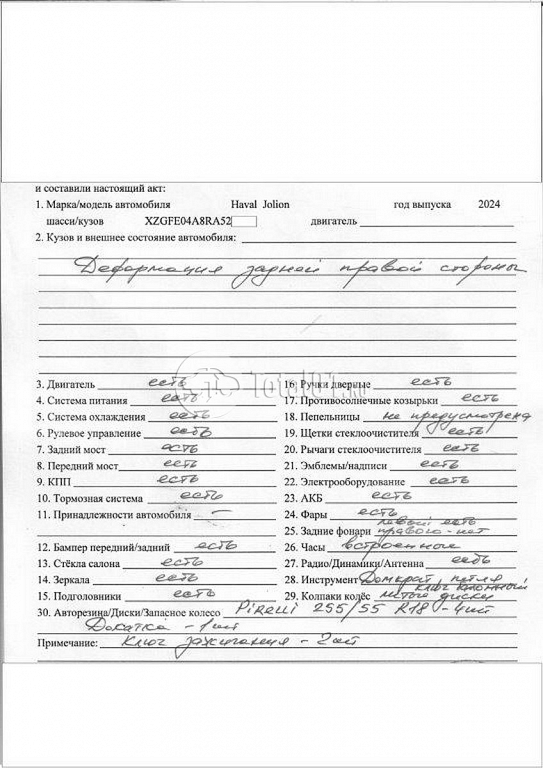 и составили настоящий акт:
1. Марка/модель автомобиля Haval Jolion год выпуска 2024
шасси/кузов XZGFE04A8RA52 двигатель
2. Кузов и внешнее состояние автомобиля:
Деформация задней правой стороны
3. Двигатель есть 16 Ручки дверные есть
4. Система питания есть 17. Противосолнечные козырьки есть
5. Система охлаждения есть 18. Пепельницы не предусмотрена
6. Рулевое управление есть 19. Щетки стеклоочистителя есть
7. Задний мост есть 20. Рычаги стеклоочистителя есть
8. Передний мост есть 21. Эмблемы/надписи есть
9. КПП есть 22. Электрооборудование есть
10. Тормозная система есть 23. АКБ есть
11. Принадлежности автомобиля – 24. Фары есть
левый есть
25. Задние фонари правого-нет
12. Бампер передний/задний есть 26. Часы встроенные
13. Стёкла салона есть 27. Радио/Динамики/Антенна есть
14. Зеркала есть 28. Инструмент Домкрат, петля
ключ балонный
15. Подголовники есть 29. Колпаки колёс литые диски
30. Авторезина/Диски/Запасное колесо Pirelli 255/55 R18 - 4шт
Докатка - 1шт
Примечание: Ключ зажигания - 2шт
Total01.ru